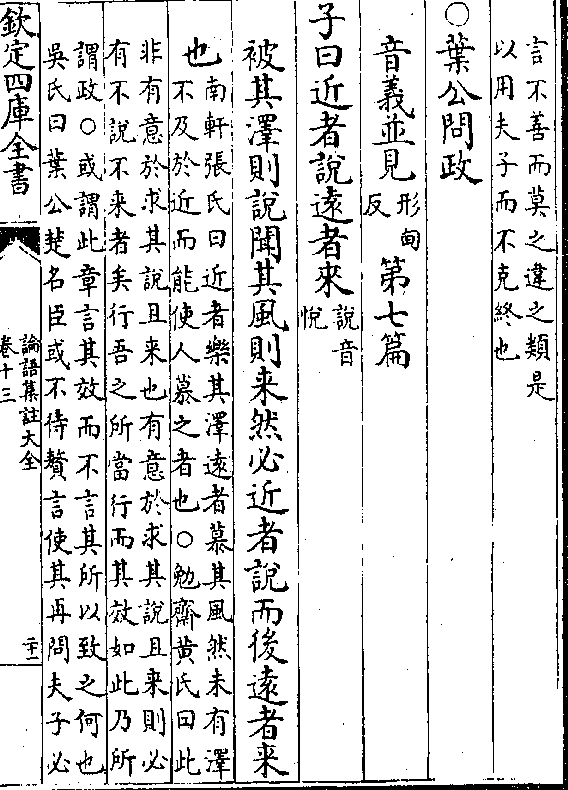 言不善而莫之違之類是
以用夫子而不克終也
○葉公問政
音義並見形甸反第七篇
子曰近者說遠者來說音悅
被其澤則說聞其風則来然必近者說而後遠者来
也南軒張氏曰近者樂其澤遠者慕其風然未有澤
不及於近而能使人慕之者也○勉齋黄氏曰此
非有意於求其說且来也有意於求其說且来則必
有不說不来者矣行吾之所當行而其效如此乃所
謂政○或謂此章言其效而不言其所以致之何也
吳氏曰葉公楚名臣或不待贅言使其再問夫子必
欽定四庫全書
論語集註大全
卷十三
二十二